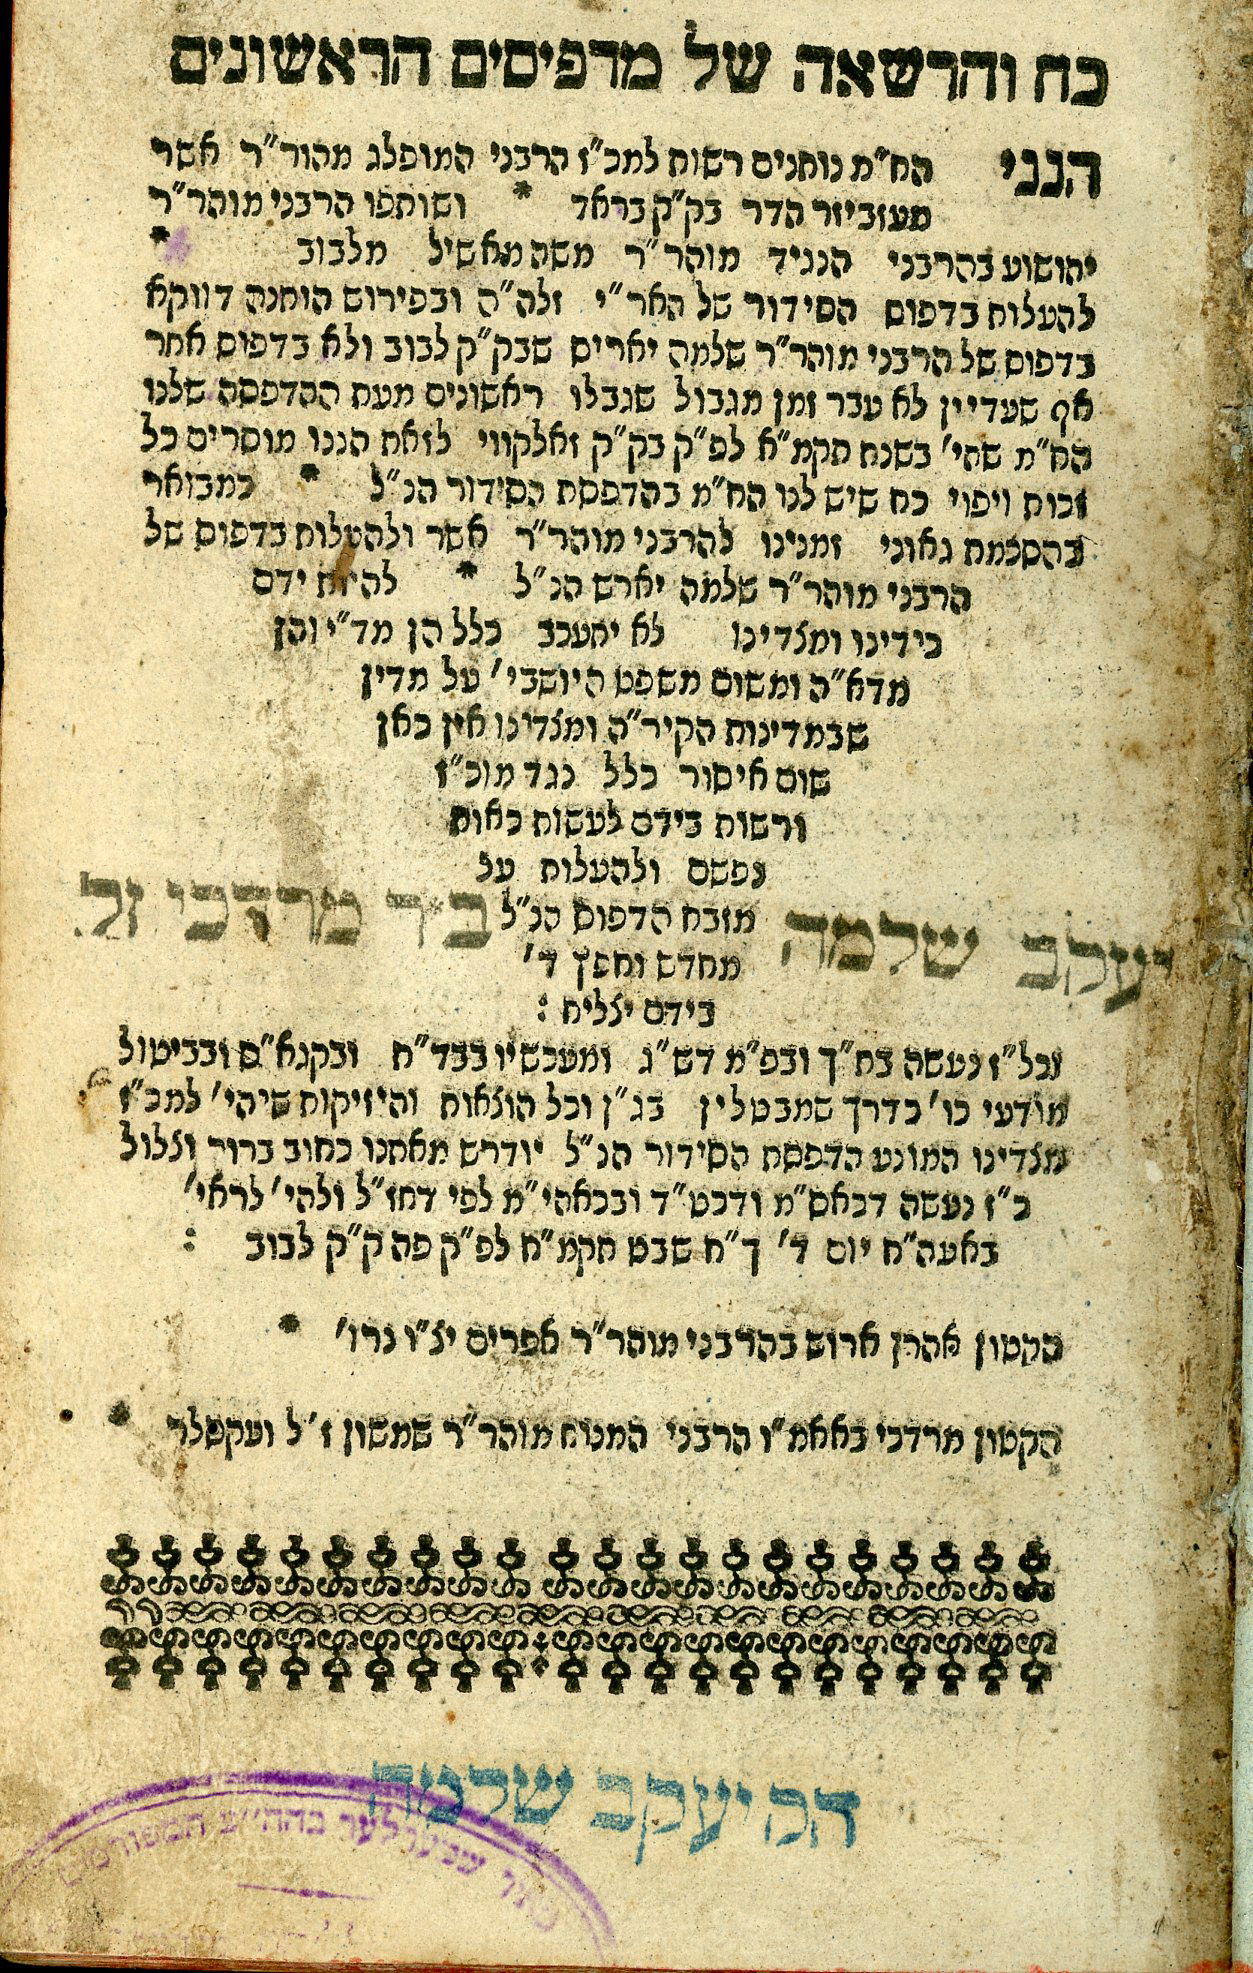 כח והרשאה של מדפיסים הראשונים
הנני הח״מ נותנים רשות למכ״ז הרבני המופלג מהור״ר אשר
מעזביזר הדר בק״ק בראד * ושותפו הרבני מוהר״ר
יהושוע בהרבני הנגיד מוהר״ר משה מאשיל מלבוב *
להעלות בדפוס הסידור של האר״י זלה״ה ובפירוש הותנה דווקא
בדפוס של הרבני מוהר״ר שלמה יארים שבק״ק לבוב ולא בדפוס אחר
אף שעדיין לא עבר זמן מגבול שגבלו ראשונים מעת ההדפסה שלנו
הח״מ שהי׳ בשנת תקמ״א לפ״ק בק״ק זאלקווי לזאת הננו מוסרים כל
זכות ויפוי כח שיש לנו הח״מ בהדפסת הסידור הנ״ל * כמבואר
בהסכמת גאוני זמנינו להרבני מוהר״ר אשר ולהעלות בדפוס של
הרבני מוהר״ר שלמה יארש הנ״ל * להיות ידם
כידינו ומצדינו לא יתעכב כלל הן מד״י והן
מדא״ה ומשום משפט היושבי׳ על מדין
שבמדינות הקיר״ה ומצדינו אין כאן
שום איסור כלל כגד מוכ״ז
ורשות בידם לעשות כאות
נפשם ולהעלות על
מזבח הדפוס הנ״ל
יעקב שלמה ב״ד מרדכי זל
מחדש וחפץ ד׳
בידם יצליח :
וכל״ז נעשה בח״ך ובפ״מ דש״ג ומעכשיו בבד״ח ובקגא״ס ובביטול
מודעי כו׳ כדרך שמבטלין בג״ן וכל הוצאות והיזיקות שיהי׳ למכ״ז
מצדינו המונע הדפסת הסידור הנ״ל יודרש מאתנו כחוב ברור וצלול
כ״ז נעשה דכאס״מ ודכט״ד ובכאהי״מ לפי דחז״ל ולהי׳ לראי׳
באעה״ח יום ד׳ ך״ח שבט תקמ״ח לפ״ק פה ק״ק לבוב :
הקטון אהרן ארוש בהרבני מוהר״ר אפרים יצ״ו נרו׳ *
הקטון מרדכי באאמ״ו הרבני המנוח מוהר״ר שמשון ז׳ל ועקסלר *
הק יעקב שלמה